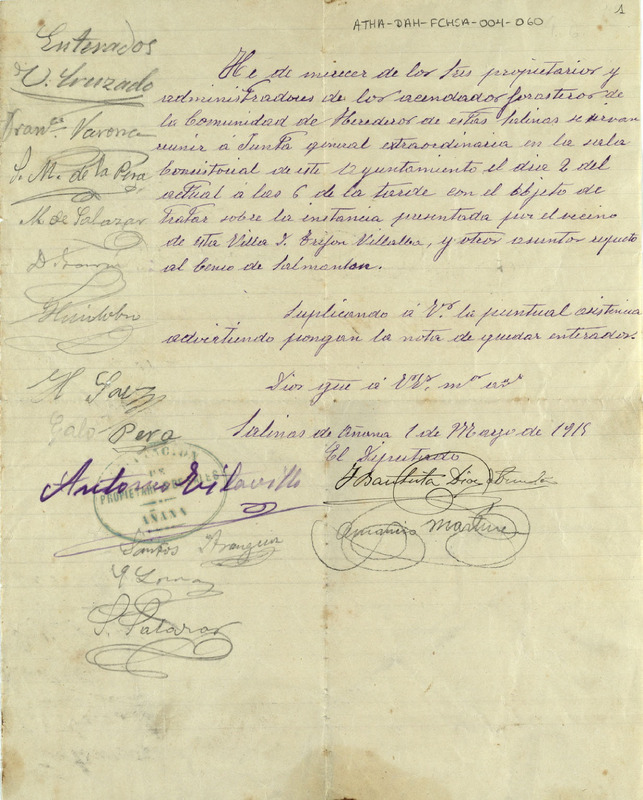 1
ATHA-DAH-FCHSA-004-060
Enterados
V. Cruzado
Franco Varona
S. M. de la Pera
M. de Salazar
Huidobro
Galo Pera
He de mirecer de los tres propietarios y
administradores de los acendados forasteros de
la Comunidad de Herederos de estas Salinas se sirvan
reunir á Junta general extraordinaria en la sala
Consistorial de este Ayuntamiento el dia 2 del
actual á las 6 de la tarde con el objeto de
tratar sobre la instancia presentada por el vecino
de esta Villa Villalba, y otros asuntos respecto
al Censo de Salmanton.
Suplicando á Vs. la puntual asistencia
advirtiendo pongan la nota de quedar enterados.
Dios gue á VVs. ms as
Salinas de Añana 1 de Mayo de 1915
El Diputado
J Bautista
Martinez
Antonio
PROPIETARIOS
DE
AÑANA
Santos
S. Salazar